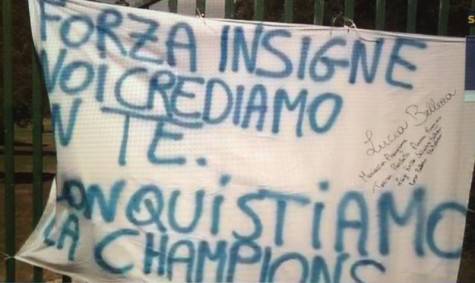 FORZA INSIGNE
NOI CREDIAMO
IN TE.
CONQUISTIAMO
LA CHAMPIONS
Lucia Bellera